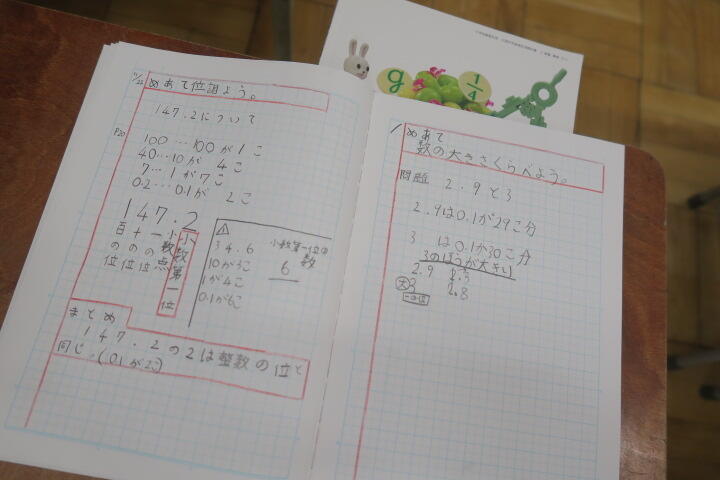 めあて位調よう。
147.2について
P20
100…100が1こ
40…10が4こ
7…1が7こ
0.2…0.1が2こ
147.2
百の位
十の位
一の位
小数点
小数第一位
34.6
小数第一位の数
10が3こ
6
1が4こ
0.1が6こ
まとめ
147.2の2は整数の位と
同じ。(0.1が2こ)
めあて
数の大きさくらべよう。
問題 2.9と3
2.9は0.1が29こ分
3は0.1が30こ分
3のほうが大きい
2.9
大3
2.8
一の位
g
1/4